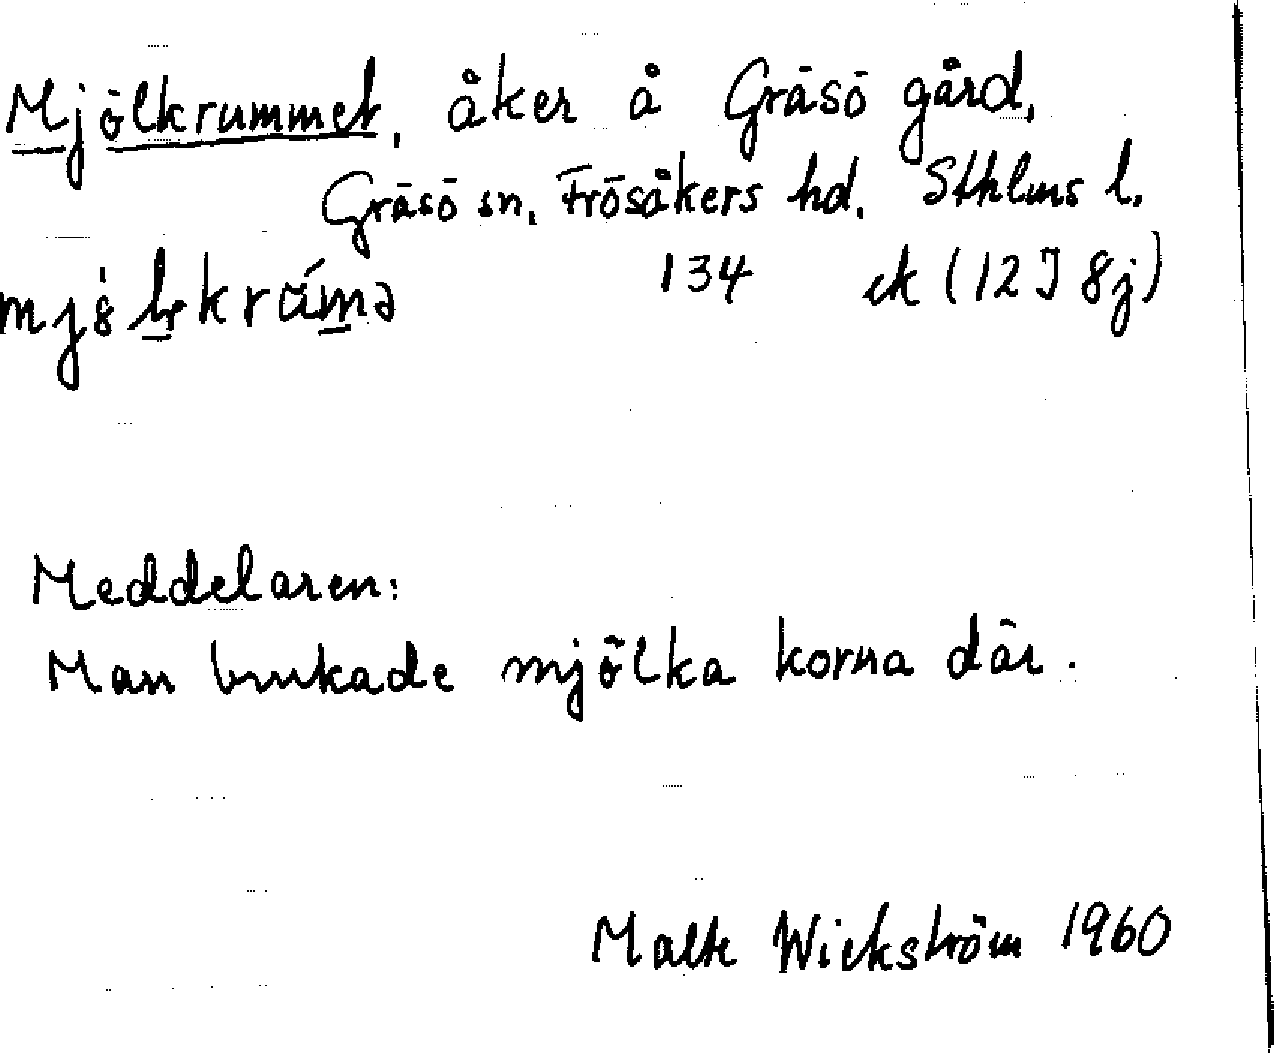 Mjölkrummet, åker å Gräsö gård,
Gräsö sn, Frösåkers hd, Sthlms l.
134 ek (12 I 8j)
Meddelaren:
Man brukade mjölka korna där.
Malte Wickström 1960